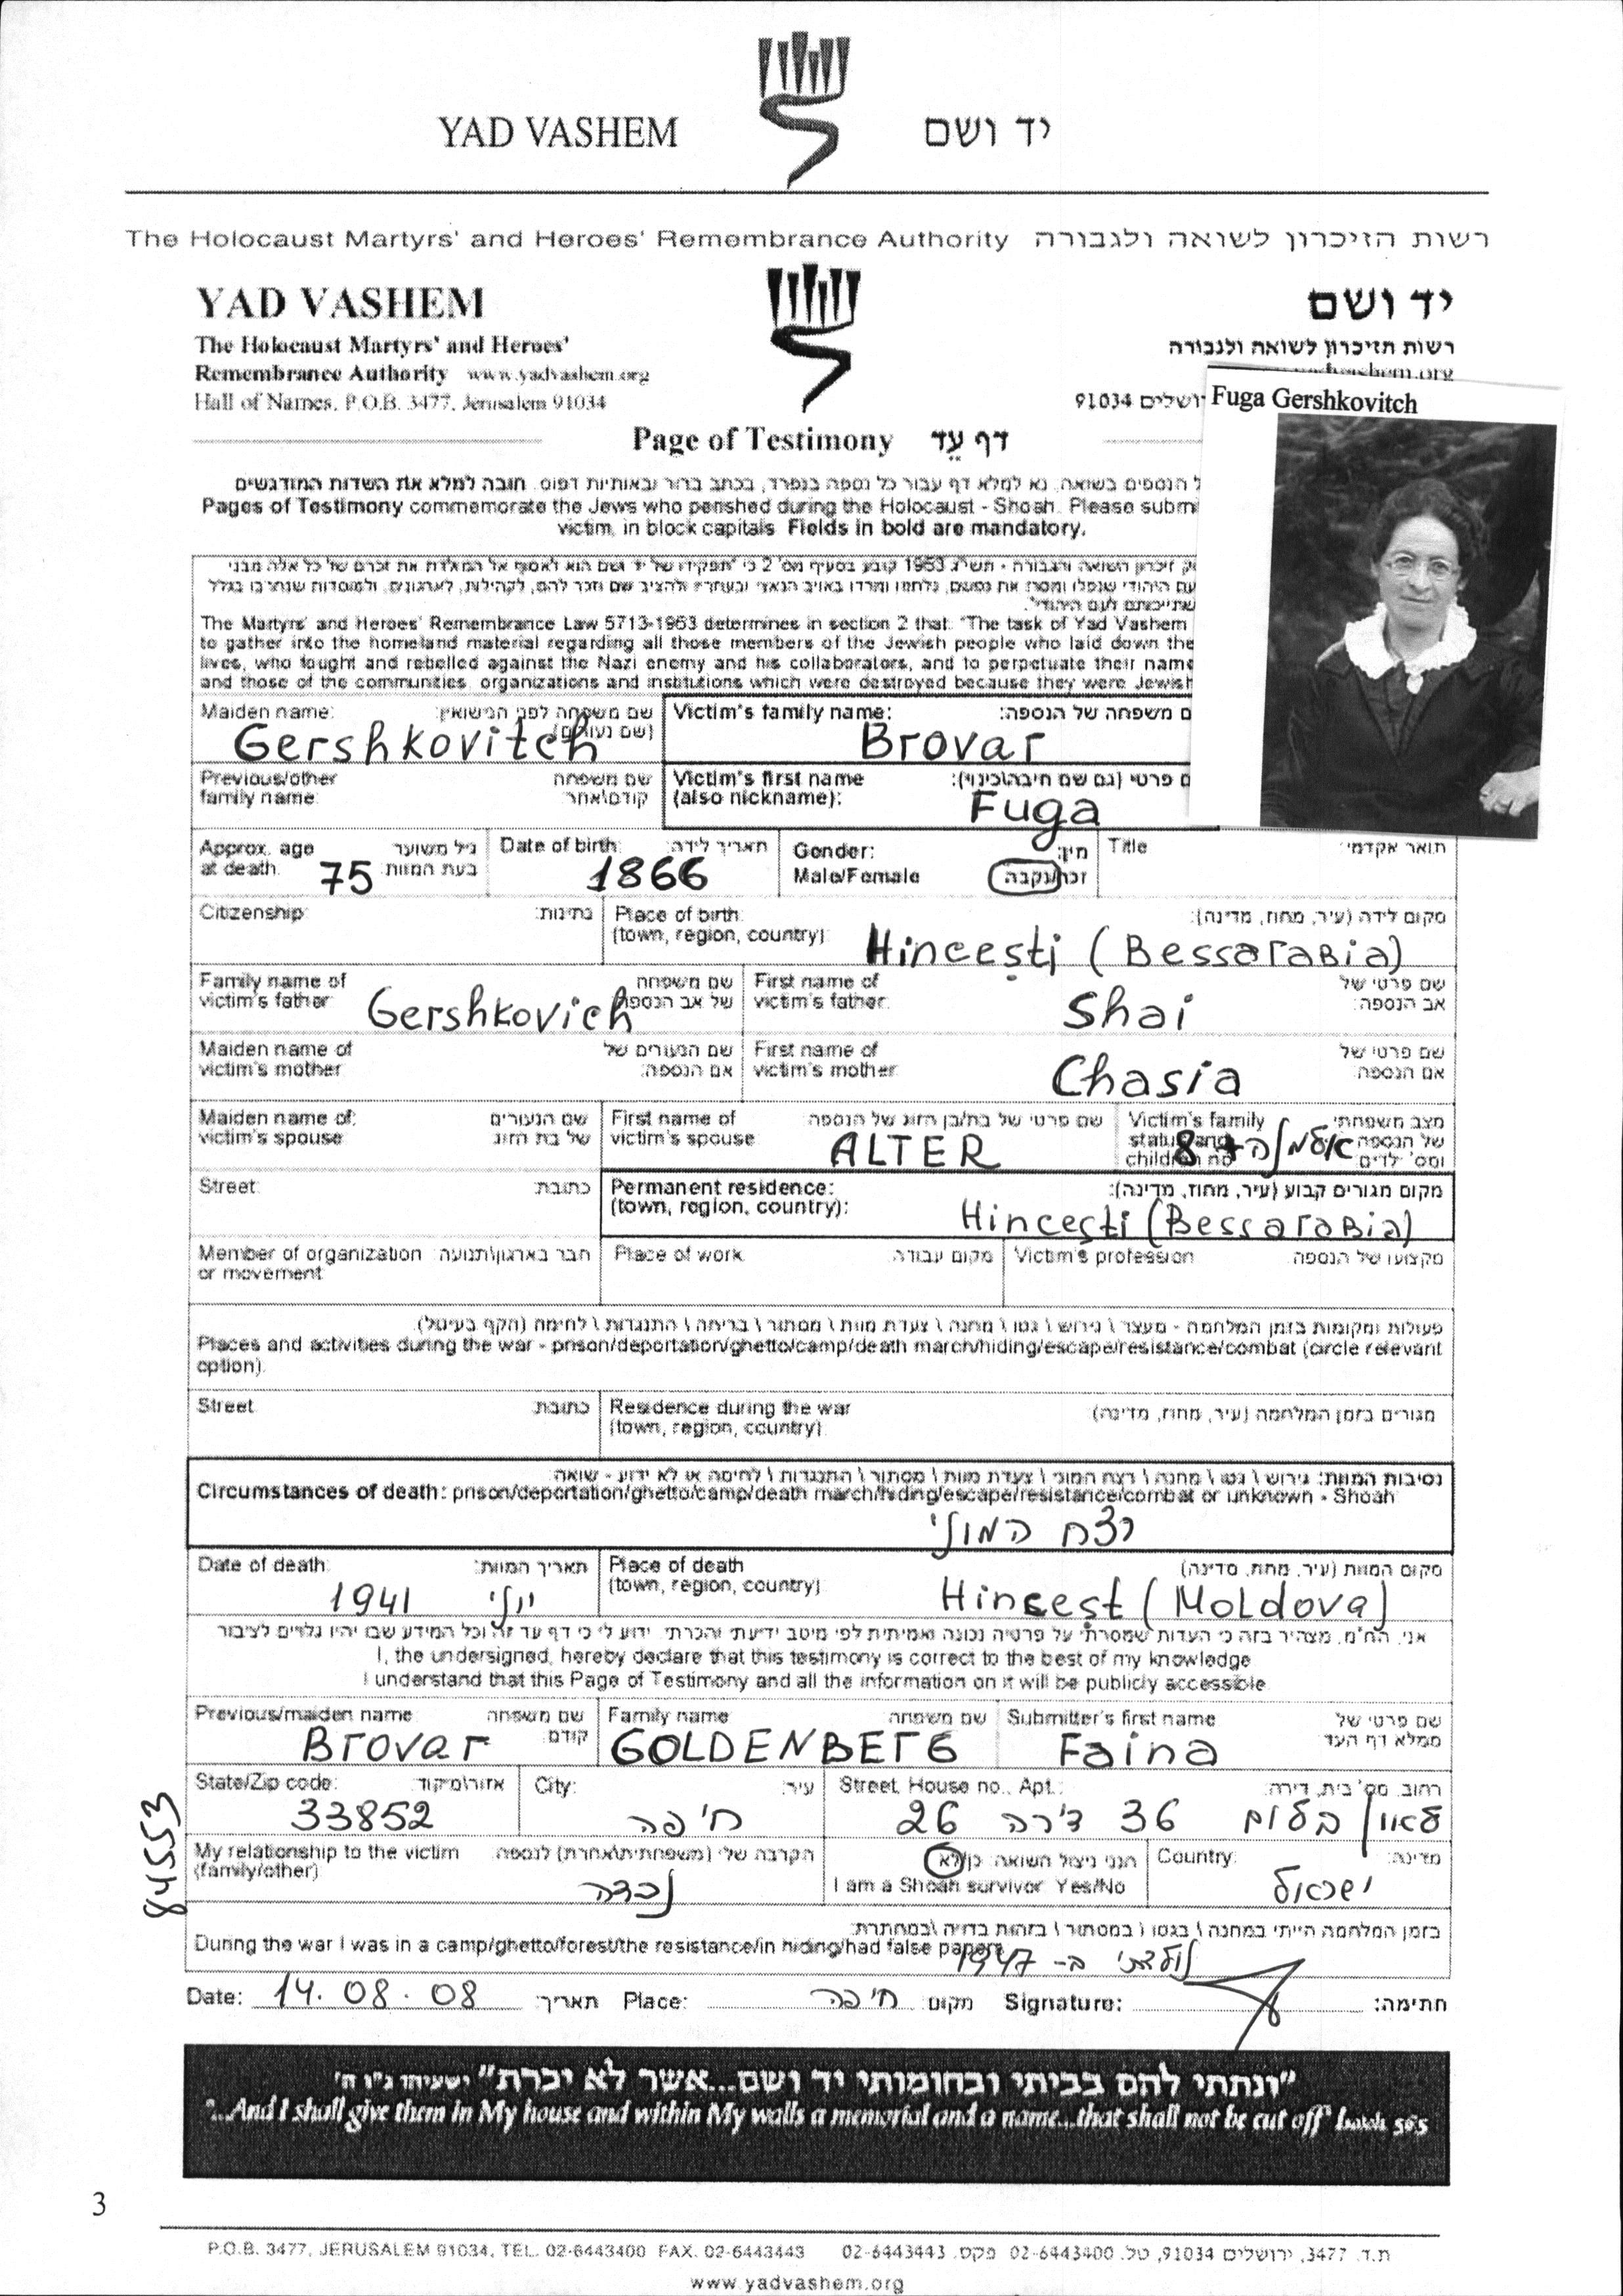 YAD VASHEM יד ושם
The Holocaust Martyrs' and Heroes' Remembrance Authority רשות הזיכרון לשואה ולגבורה
YAD VASHEM יד ושם
The Holocaust Martyrs' and Heroes' רשות הזיכרון לשואה ולגבורה
Remembrance Authority www.yadvashem.org
Hall of Names, P.O.B. 3477, Jerusalem 91034 91034
Fuga Gershkovitch
Page of Testimony דף עֵד
הנספים בשואה. נא למלא דף עבור כל נספה בנפרד, בכתב ברור ובאותיות דפוס. חובה למלא את השדות המודגשים
Pages of Testimony commemorate the Jews who perished during the Holocaust - Shoah. Please
victim, in block capitals. Fields in bold are mandatory.
זיכרון השואה והגבורה - תשי"ג 1953 קובע בסעיף מס' 2 כי "תפקידו של יד ושם הוא לאסוף אל המולדת את זכרם של כל אלה מבני
עם היהודי שנפלו ומסרו את נפשם, נלחמו ומרדו באויב הנאצי ובעוזריו ולהציב שם וזכר להם, לקהילות, לארגונים, ולמוסדות שנחרבו בגלל
שתייכותם לעם היהודי".
The Martyrs' and Heroes' Remembrance Law 5713-1953 determines in section 2 that: "The task of Yad Vashem
to gather into the homeland material regarding all those members of the Jewish people who laid down the
lives, who fought and rebelled against the Nazi enemy and his collaborators, and to perpetuate their name
and those of the communities, organizations and institutions which were destroyed because they were Jewish
Maiden name: שם משפחה לפני הנישואין: Victim's family name: משפחה של הנספה:
(שם נעורים)
Gershkovitch Brovar
Previous/other שם משפחה Victim's first name פרטי (גם שם חיבה\כינוי):
family name: קודם\אחר: (also nickname):
Fuga
Approx. age גיל משוער Date of birth: תאריך לידה: Gender: מין: Title תואר אקדמי:
at death: בעת המוות: Male/Female זכר/נקבה
75 1866
Citizenship: נתינות: Place of birth: מקום לידה (עיר, מחוז, מדינה):
(town, region, country):
Hincești (Bessarabia)
Family name of שם משפחה First name of שם פרטי של
victim's father: של אב הנספה victim's father: אב הנספה:
Gershkovich Shai
Maiden name of שם הנעורים של First name of שם פרטי של
victim's mother: אם הנספה: victim's mother: אם הנספה:
Chasia
Maiden name of: שם הנעורים First name of שם פרטי של בת/בן הזוג של הנספה Victim's family מצב משפחתי
victim's spouse: של בת הזוג victim's spouse: status and של הנספה
children no ומס' ילדים
ALTER אלמנה + 8
Street: כתובת: Permanent residence: מקום מגורים קבוע (עיר, מחוז, מדינה):
(town, region, country):
Hincești (Bessarabia)
Member of organization חבר בארגון\תנועה: Place of work: מקום עבודה: Victim's profession: מקצועו של הנספה:
or movement:
פעולות ומקומות בזמן המלחמה - מעצר \ גירוש \ גטו \ מחנה \ צעדת מוות \ מסתור \ בריחה \ התנגדות \ לחימה (הקף בעיגול).
Places and activities during the war - prison/deportation/ghetto/camp/death march/hiding/escape/resistance/combat (circle relevant
option).
Street: כתובת: Residence during the war מגורים בזמן המלחמה (עיר, מחוז, מדינה)
(town, region, country)
נסיבות המוות: גירוש \ גטו \ מחנה \ רצח המוני \ צעדת מוות \ מסתור \ התנגדות \ לחימה או לא ידוע - שואה:
Circumstances of death: prison/deportation/ghetto/camp/death march/hiding/escape/resistance/combat or unknown - Shoah:
רצח המוני
Date of death: תאריך המוות: Place of death מקום המוות (עיר, מחוז, מדינה)
(town, region, country)
1941 יולי Hincest (Moldova)
אני, הח"מ, מצהיר בזה כי העדות שמסרתי על פרטיה נכונה ואמיתית לפי מיטב ידיעתי והכרתי. ידוע לי כי דף עד זה וכל המידע שבו יהיו גלויים לציבור
I, the undersigned, hereby declare that this testimony is correct to the best of my knowledge
I understand that this Page of Testimony and all the information on it will be publicly accessible
Previous/maiden name שם משפחה Family name שם משפחה: Submitter's first name שם פרטי של
קודם: ממלא דף העד
Brovar GOLDENBERG Faina
State/Zip code: אזור\מיקוד: City: עיר: Street, House no., Apt.: רחוב, מס' בית, דירה:
33852 חיפה 36 דירה 26
My relationship to the victim הקרבה שלי (משפחתית\אחרת) לנספה: הנני ניצול השואה: כן\לא Country: מדינה:
(family/other): I am a Shoah survivor: Yes/No
נכדה ישראל
בזמן המלחמה הייתי במחנה \ בגטו \ במסתור \ בזהות בדויה \ במחתרת:
During the war I was in a camp/ghetto/forest/the resistance/in hiding/had false papers
נולדתי ב- 1947
Date: 14.08.08 תאריך: Place: חיפה מקום Signature: חתימה:
84553
"ונתתי להם בביתי ובחומותי יד ושם...אשר לא יכרת" ישעיהו נ"ו ה'
"...And I shall give them in My house and within My walls a memorial and a name...that shall not be cut off" Isaiah 56:5
3
P.O.B. 3477, JERUSALEM 91034, TEL. 02-6443400 FAX. 02-6443443 ת.ד. 3477, ירושלים 91034, טל. 02-6443400 פקס. 02-6443443
www.yadvashem.org